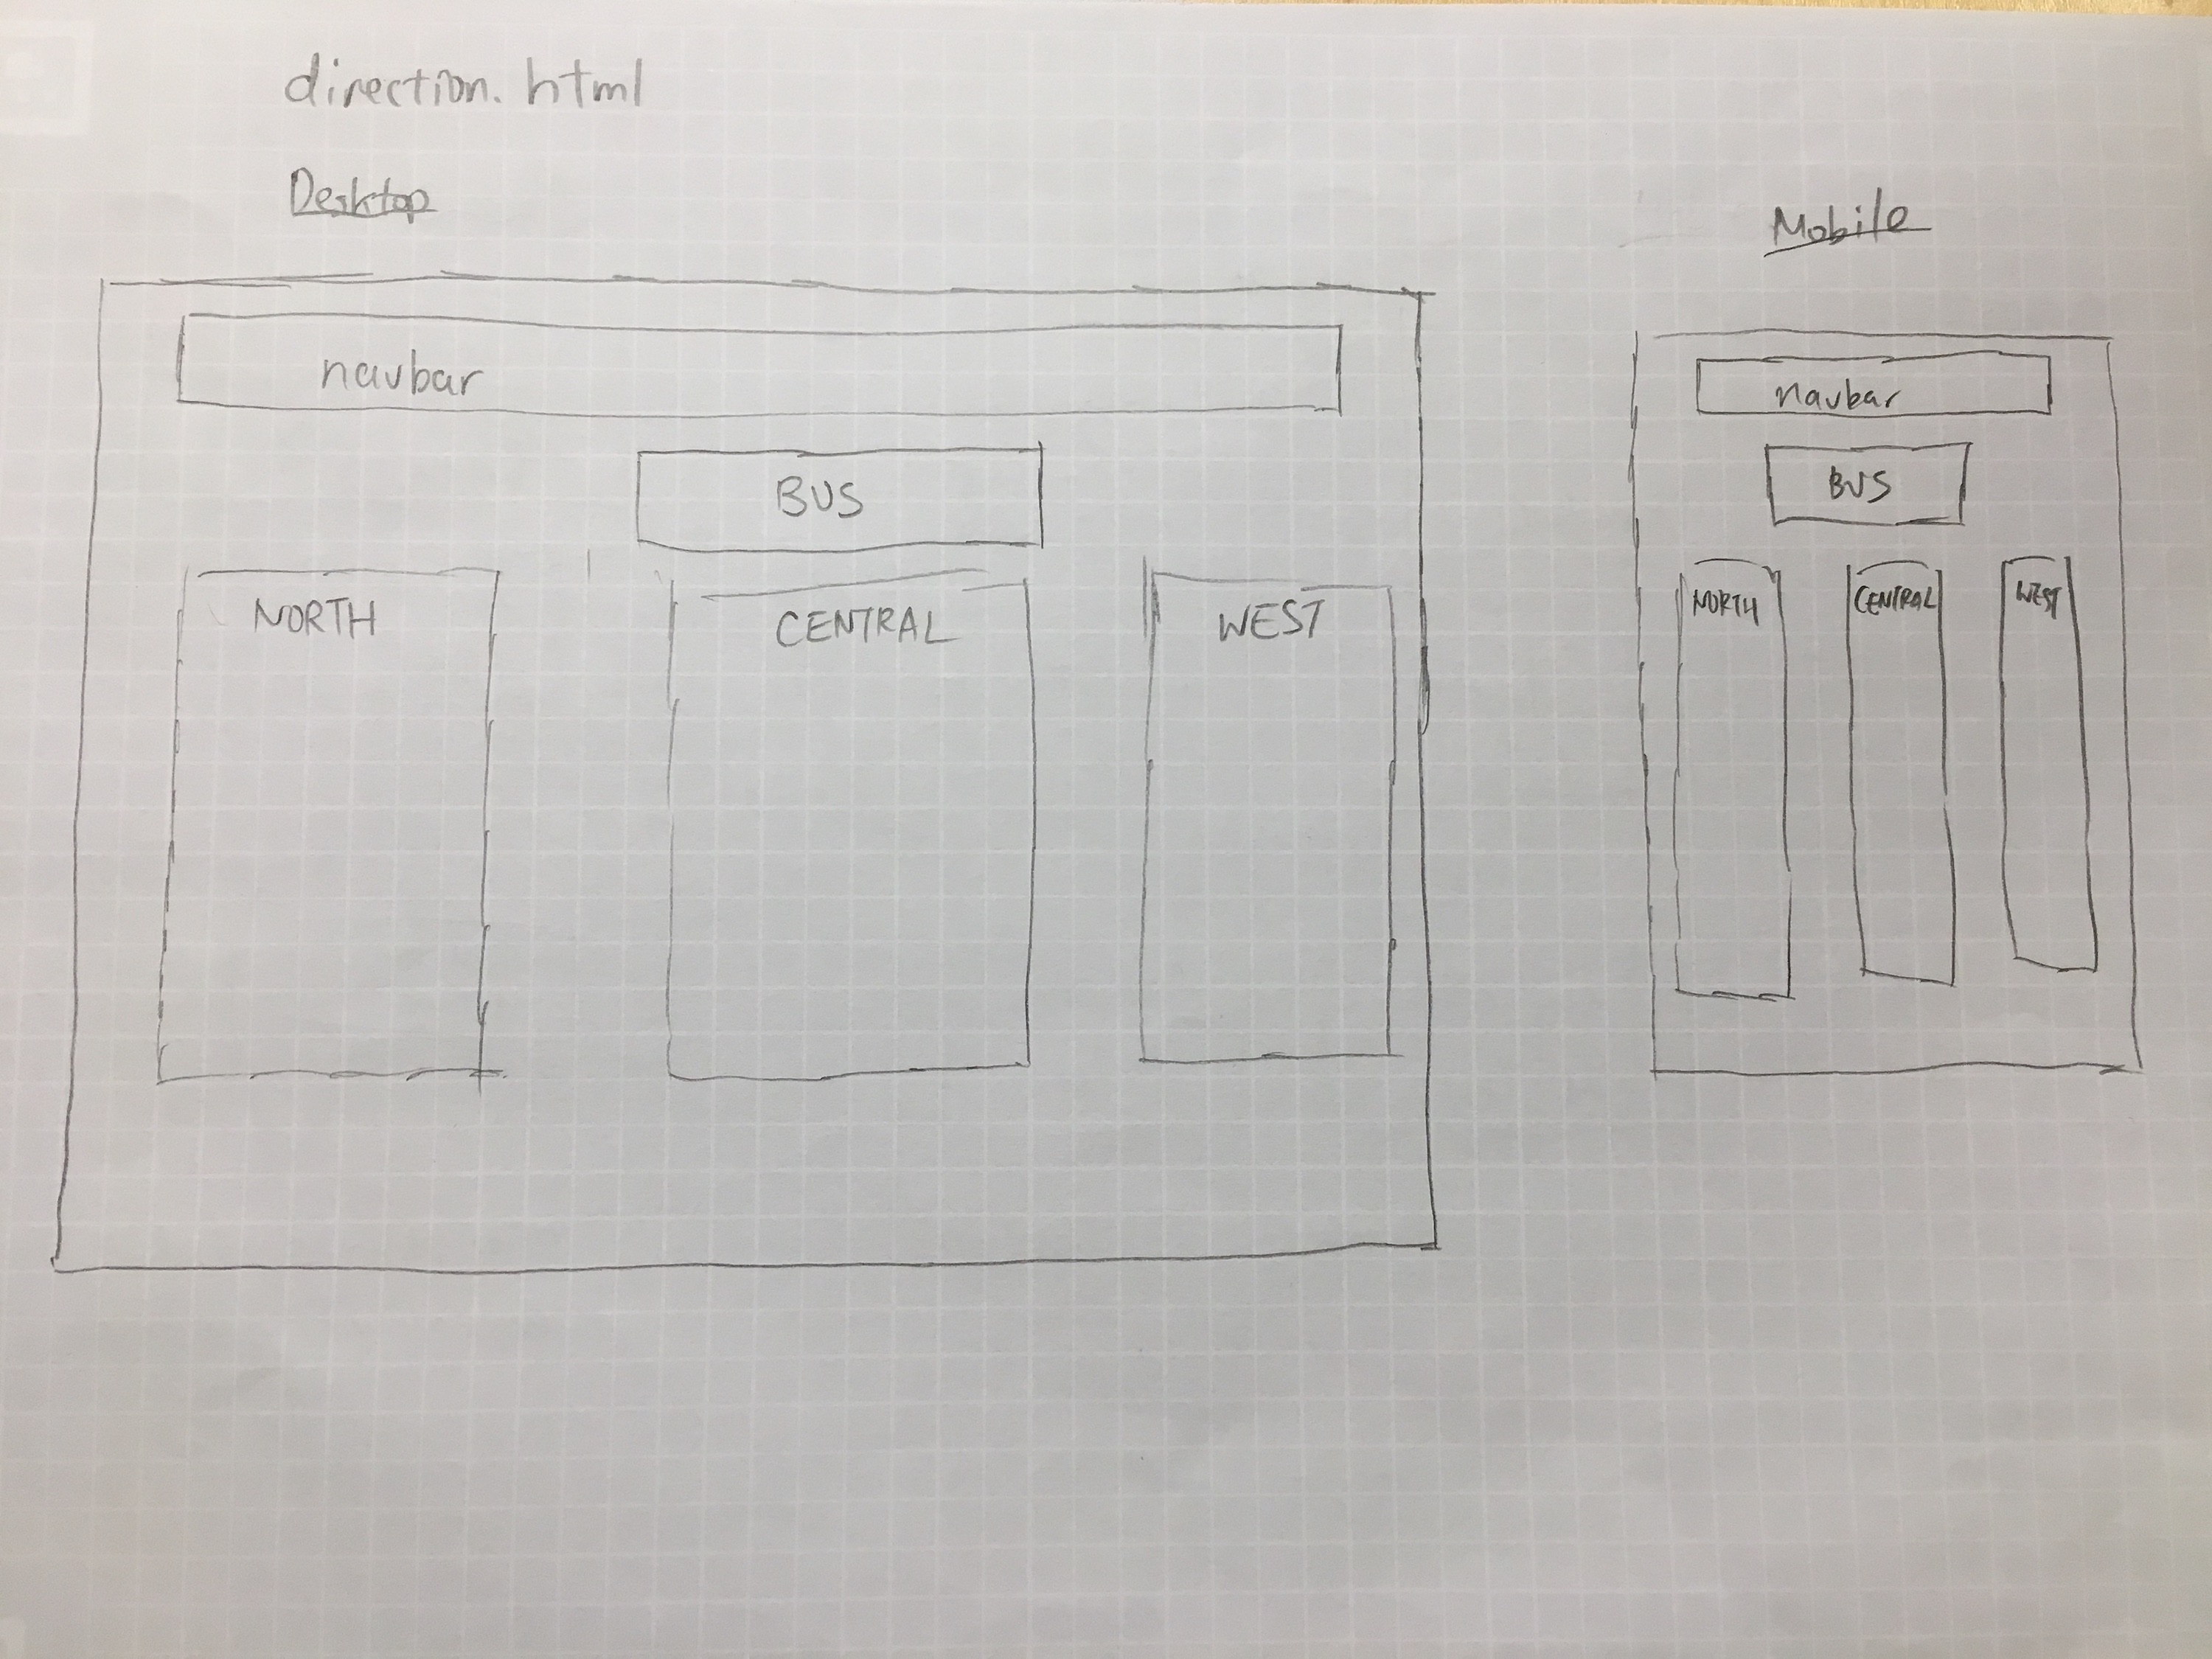 direction.html
Desktop
navbar
BUS
NORTH
CENTRAL
WEST
Mobile
navbar
BUS
NORTH
CENTRAL
WEST